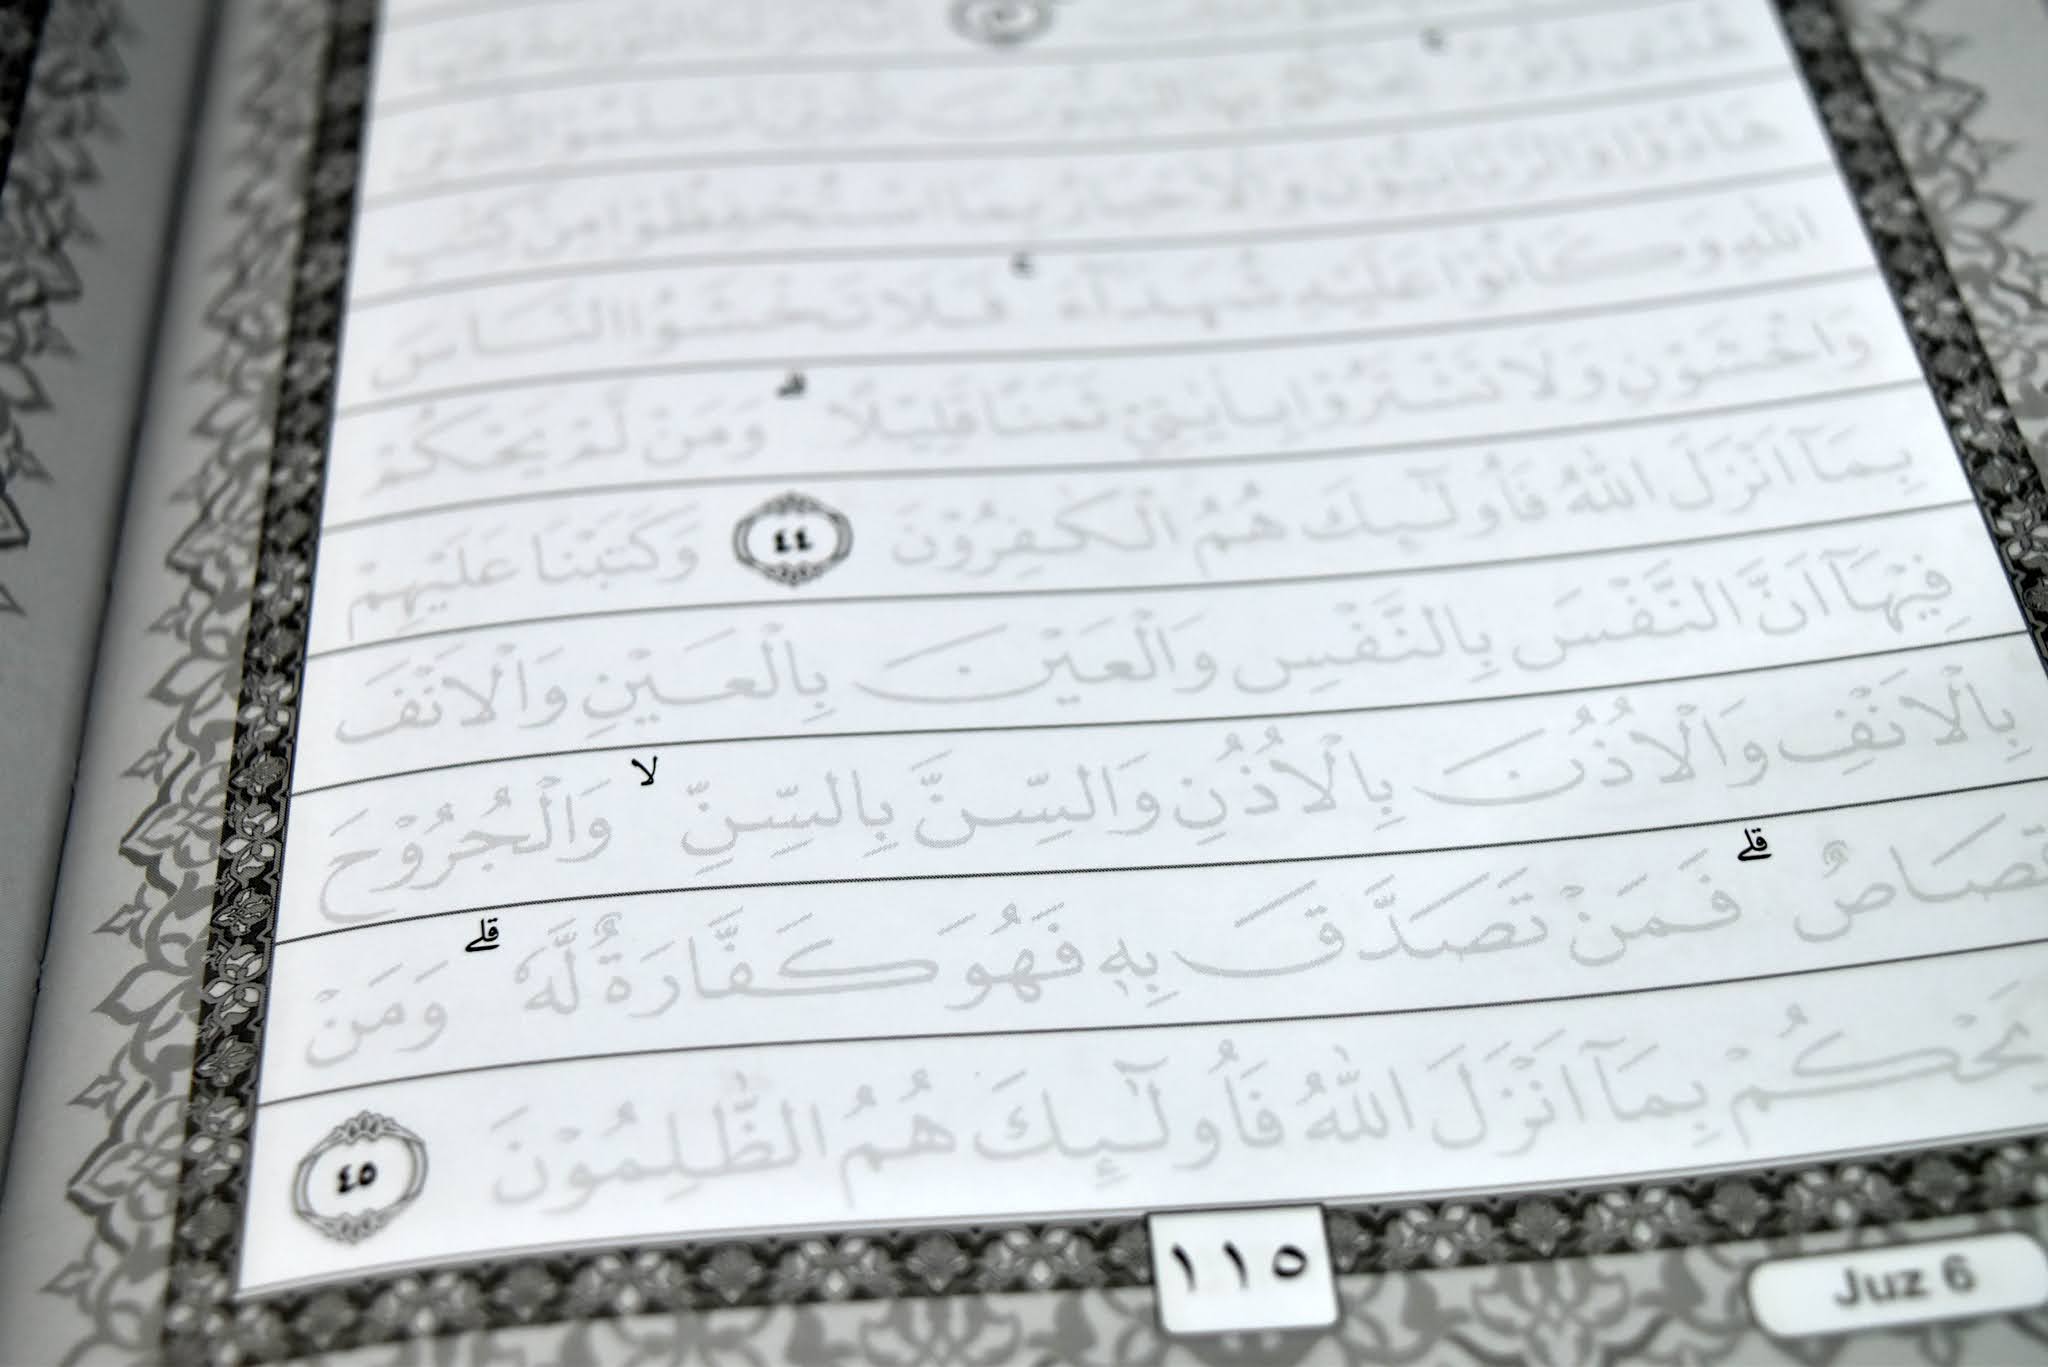 هَادُوْا وَالرَّبَّانِيُّوْنَ وَالْاَحْبَارُ بِمَا اسْتُحْفِظُوْا مِنْ كِتٰبِ
اللّٰهِ وَكَانُوْا عَلَيْهِ شُهَدَاۤءَ ۚ فَلَا تَخْشَوُا النَّاسَ
وَاخْشَوْنِ وَلَا تَشْتَرُوْا بِاٰيٰتِيْ ثَمَنًا قَلِيْلًا ۗ وَمَنْ لَّمْ يَحْكُمْ
بِمَآ اَنْزَلَ اللّٰهُ فَاُولٰۤىِٕكَ هُمُ الْكٰفِرُوْنَ ٤٤ وَكَتَبْنَا عَلَيْهِمْ
فِيْهَآ اَنَّ النَّفْسَ بِالنَّفْسِ وَالْعَيْنَ بِالْعَيْنِ وَالْاَنْفَ
بِالْاَنْفِ وَالْاُذُنَ بِالْاُذُنِ وَالسِّنَّ بِالسِّنِّ لا وَالْجُرُوْحَ
قِصَاصٌ قلے فَمَنْ تَصَدَّقَ بِهٖ فَهُوَ كَفَّارَةٌ لَّهٗ قلے وَمَنْ
يَحْكُمْ بِمَآ اَنْزَلَ اللّٰهُ فَاُولٰۤىِٕكَ هُمُ الظّٰلِمُوْنَ ٤٥
١١٥
Juz 6